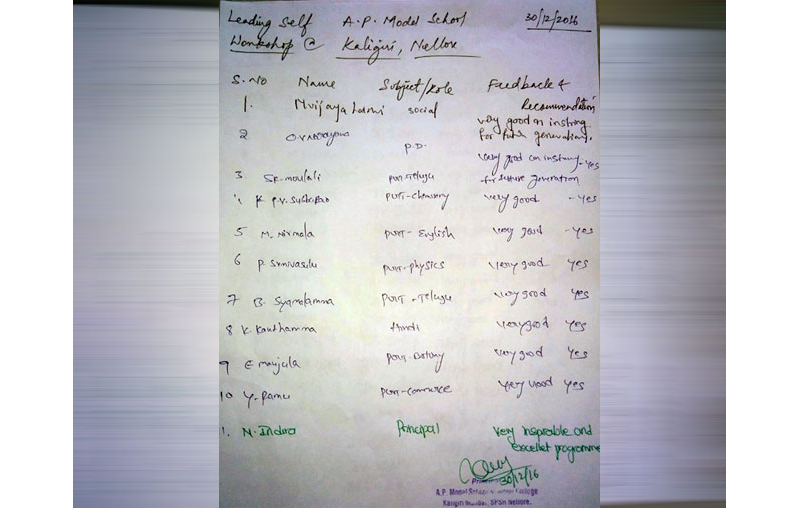 Leading Self A.P. Model School 30/12/2016
Workshop @ Kaligiri, Nellore
S.No Name Subject/Role Feedback &
Recommendation
1. M vijaya laxmi social very good on instrng
for future generations.
2 P.D. very good on instrung - yes
3 SK. moulali PGT-Telugu for future generation
4 K P.V. Subbarao very good - yes
5 M. Nirmala English very good - yes
6 P. Srinivasulu physics very good yes
7 B. Syamalamma Telugu very good yes
8 K Kanthamma Hindi very good yes
9 E manjula Botany very good yes
10 Y. Ramu commerce very good yes
N. Indira Principal very inspirable and
excellet programme
30/12/16
A.P. Model School
Kaligiri Nellore.